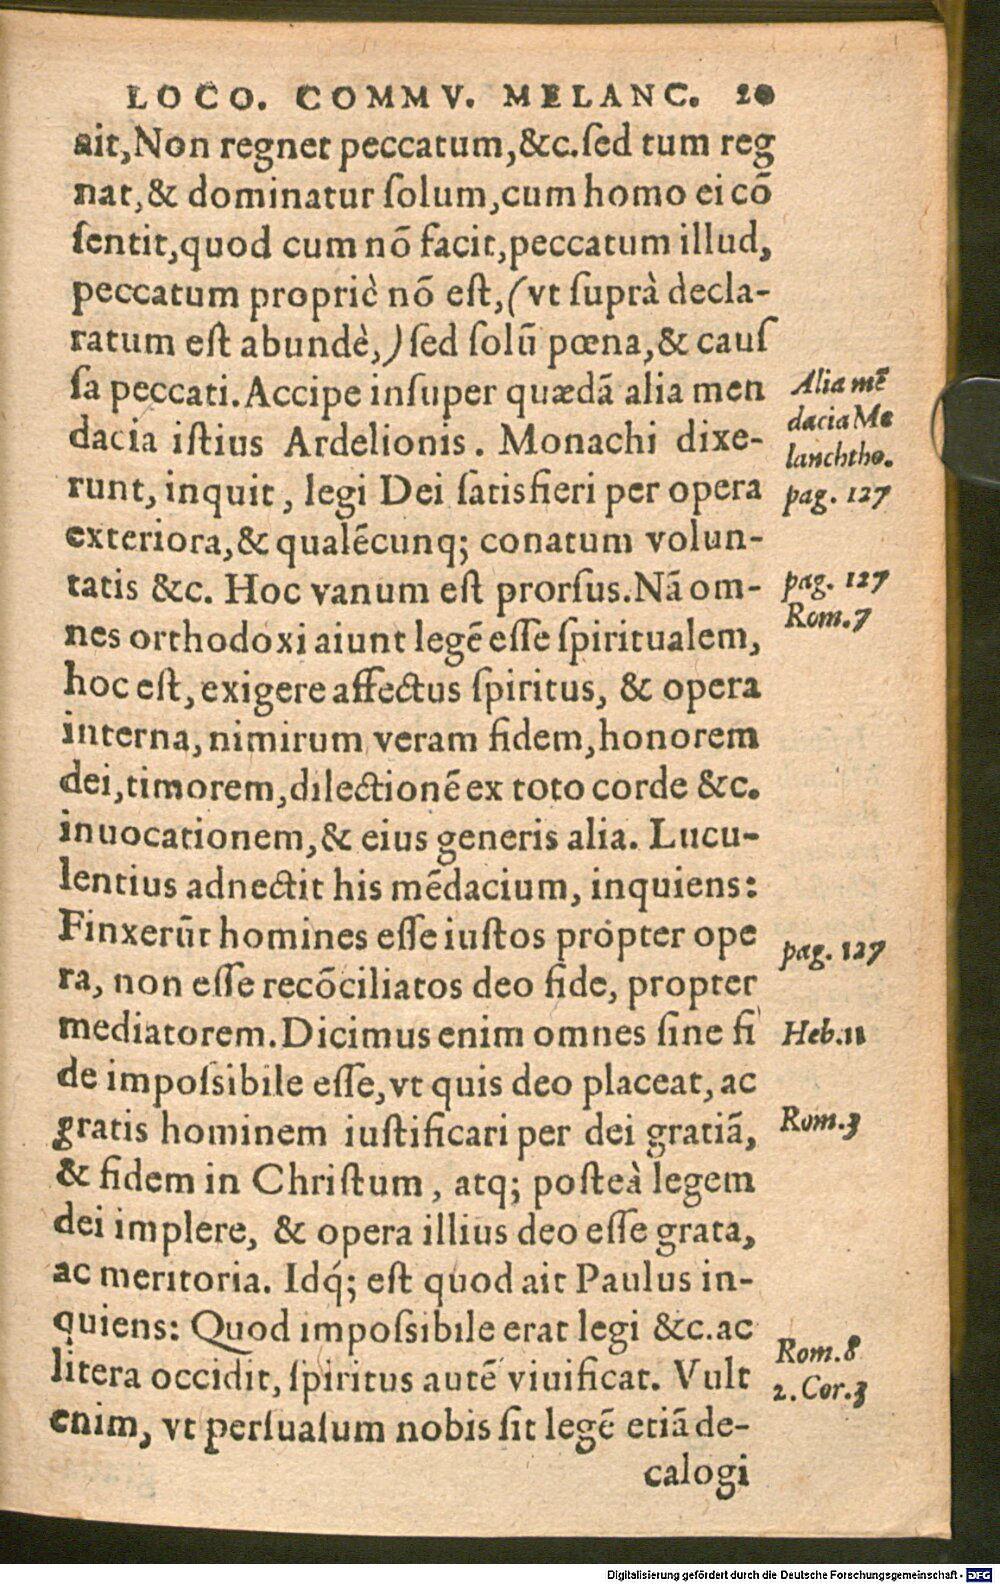 LOCO. COMMV. MELANC. 20
ait, Non regnet peccatum, &c. ſed tum reg
nat, & dominatur ſolum, cum homo ei cõ
ſentit, quod cum nõ facit, peccatum illud,
peccatum propriè nõ eſt, (vt ſuprà decla-
ratum eſt abundè,) ſed ſolũ pœna, & cauſ
ſa peccati. Accipe inſuper quædã alia men
dacia iſtius Ardelionis. Monachi dixe-
runt, inquit, legi Dei ſatisfieri per opera
exteriora, & qualẽcunq; conatum volun-
tatis &c. Hoc vanum eſt prorſus. Nã om-
nes orthodoxi aiunt legẽ eſſe ſpiritualem,
hoc eſt, exigere affectus ſpiritus, & opera
interna, nimirum veram fidem, honorem
dei, timorem, dilectionẽ ex toto corde &c.
inuocationem, & eius generis alia. Lucu-
lentius adnectit his mẽdacium, inquiens:
Finxerũt homines eſſe iuſtos própter ope
ra, non eſſe recõciliatos deo fide, propter
mediatorem. Dicimus enim omnes ſine fi
de impoſsibile eſſe, vt quis deo placeat, ac
gratis hominem iuſtificari per dei gratiã,
& fidem in Chriſtum, atq; poſteà legem
dei implere, & opera illius deo eſſe grata,
ac meritoria. Idq́; eſt quod ait Paulus in-
quiens: Quod impoſsibile erat legi &c. ac
litera occidit, ſpiritus autẽ viuificat. Vult
enim, vt perſuaſum nobis ſit legẽ etiã de-
calogi
Alia mẽ
dacia Me
lanchtho.
pag. 127
pag. 127
Rom. 7
pag. 127
Heb. 11
Rom. 3
Rom. 8
2. Cor. 3
Digitalisierung gefördert durch die Deutsche Forschungsgemeinschaft - DFG